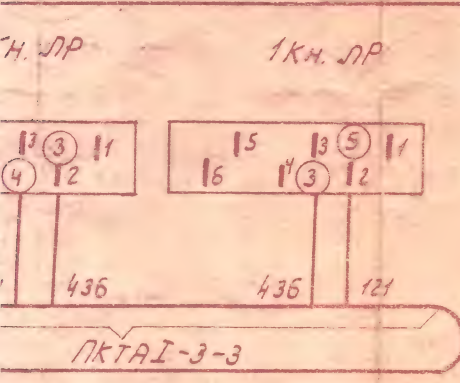 КН. ЛР 1КН. ЛР
3 3 1 5 3 5 1
4 2 6 4 3 2
436 436 121
ПКТАI-3-3